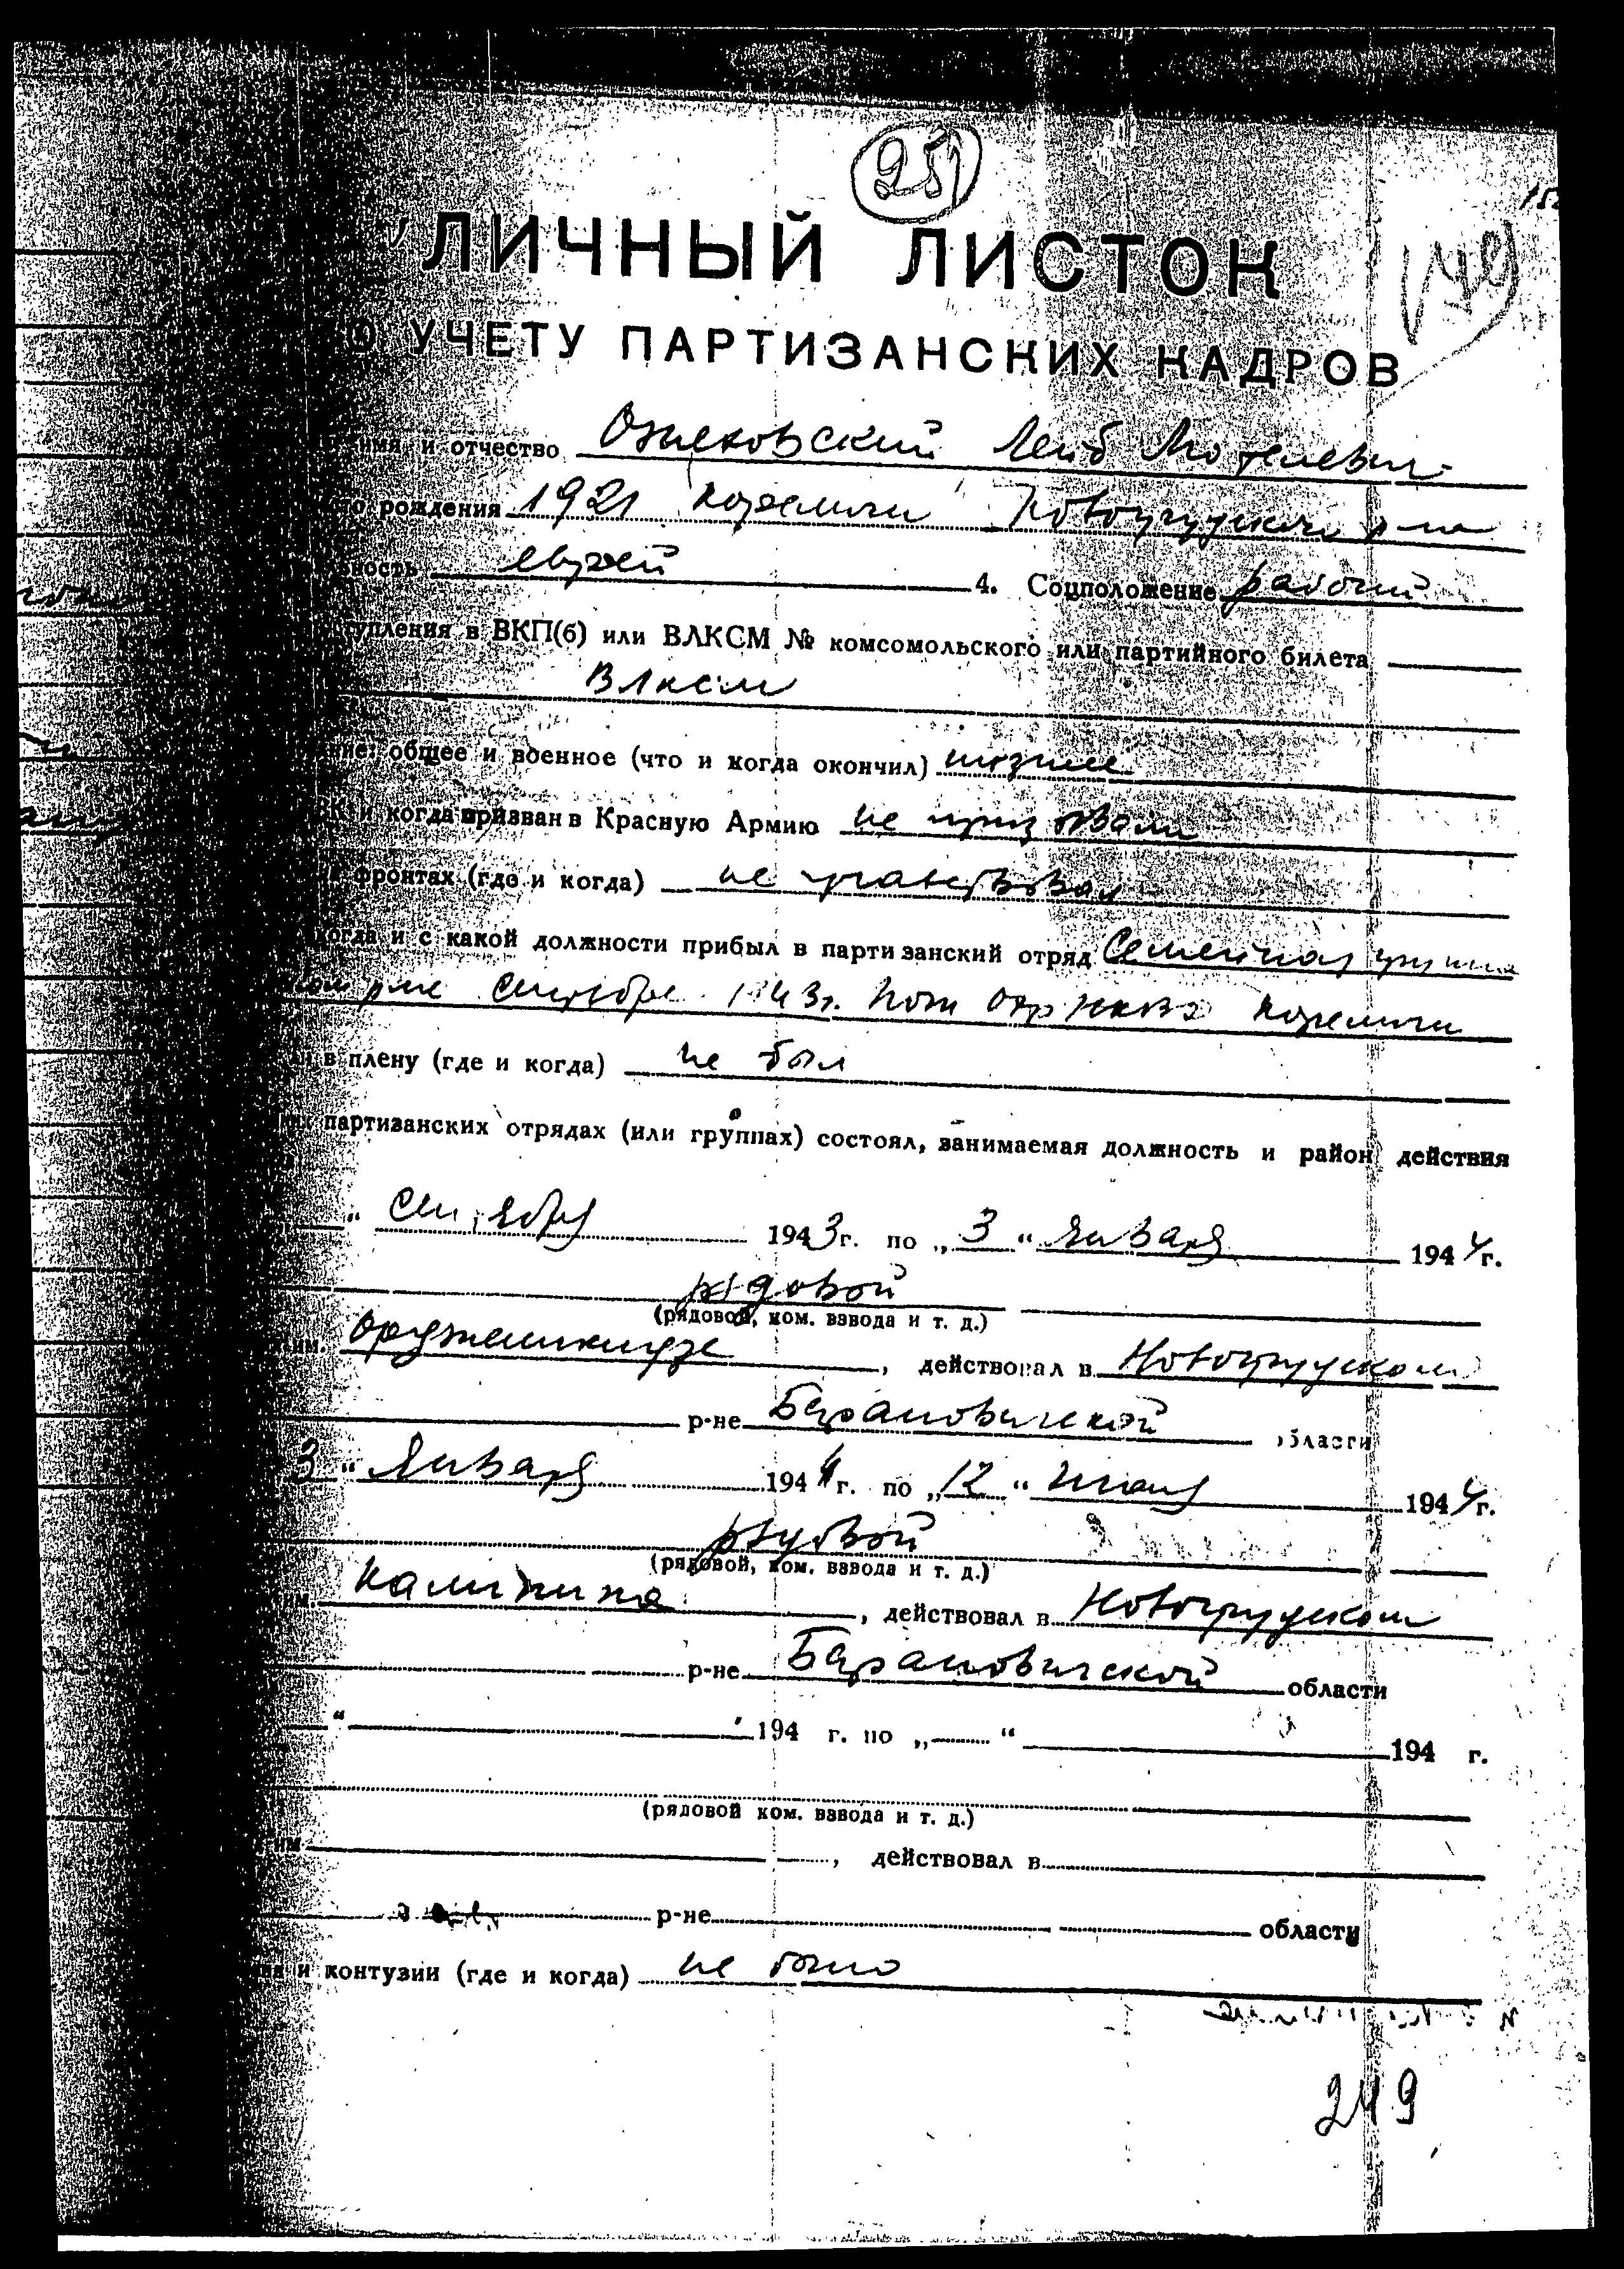 251
149
ЛИЧНЫЙ ЛИСТОК
О УЧЕТУ ПАРТИЗАНСКИХ КАДРОВ
имя и отчество Лейб Мотелевич
то рождения 1921 Кореличи Новогрудского р-на
ность еврей 4. Соцположение рабочий
тупления в ВКП(б) или ВЛКСМ № комсомольского или партийного билета
ВЛКСМ
ние: общее и военное (что и когда окончил) низшее
К и когда призван в Красную Армию не призывали
фронтах (где и когда) не участвовал
когда и с какой должности прибыл в партизанский отряд Семейная группа
сентябре 1943г. Кореличи
в плену (где и когда) не был
партизанских отрядах (или группах) состоял, занимаемая должность и район действия
“ сентября 1943г. по „3“ января 1944г.
рядовой
(рядовой, ком. взвода и т. д.)
им. Орджоникидзе, действовал в Новогрудском
р-не Барановичской области
3“ января 1944г. по „12“ июля 1944г.
рядовой
(рядовой, ком. взвода и т. д.)
им. Калинина, действовал в Новогрудском
р-не Барановичской области
“ 194 г. по „ “ 194 г.
(рядовой ком. взвода и т. д.)
им , действовал в
р-не области
и контузии (где и когда) не было
249